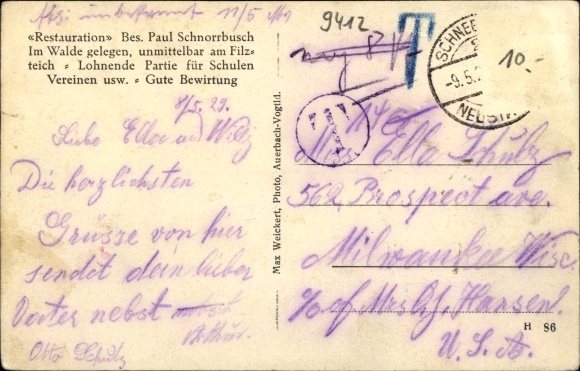 Absz. unbekannt 11/5
9412
T
10.-
SCHNEE
-9.5.2
NEUST
«Restauration» Bes. Paul Schnorrbusch
Im Walde gelegen, unmittelbar am Filz-
teich - Lohnende Partie für Schulen
Vereinen usw. - Gute Bewirtung
8/5. 29.
Liebe Ella und Willy
Die herzlichsten
Grüsse von hier
sendet dein lieber
Vater nebst
Arthur.
Otto Schulz
Max Weickert, Photo, Auerbach-Vogtld.
Miss Ella Schulz
562 Prospect ave.
Milwaukee Wisc.
% of Mrs Hansen.
U. S. A.
H 86